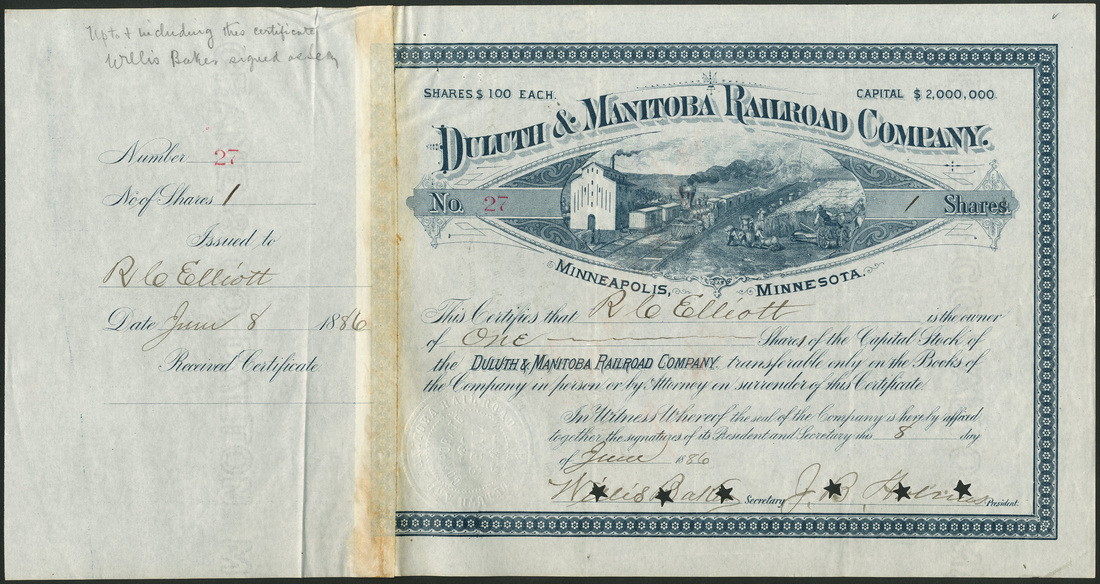 Up to & including this certificate
Willis Baker signed as Secy
Number 27
No. of Shares 1
Issued to
R C Elliott
Date June 8 1886
Received Certificate
SHARES $ 100 EACH.
CAPITAL $ 2,000,000.
DULUTH & MANITOBA RAILROAD COMPANY.
No. 27
1 Shares.
MINNEAPOLIS, MINNESOTA.
This Certifies that R C Elliott is the owner
of One Shares of the Capital Stock of
the DULUTH & MANITOBA RAILROAD COMPANY. transferable only on the Books of
the Company in person or by Attorney on surrender of this Certificate.
In Witness Whereof the seal of the Company is hereby affixed,
together the signatures of its President and Secretary this 8 day
of June 1886
Willis Baker Secretary. J. B. Holmes President.